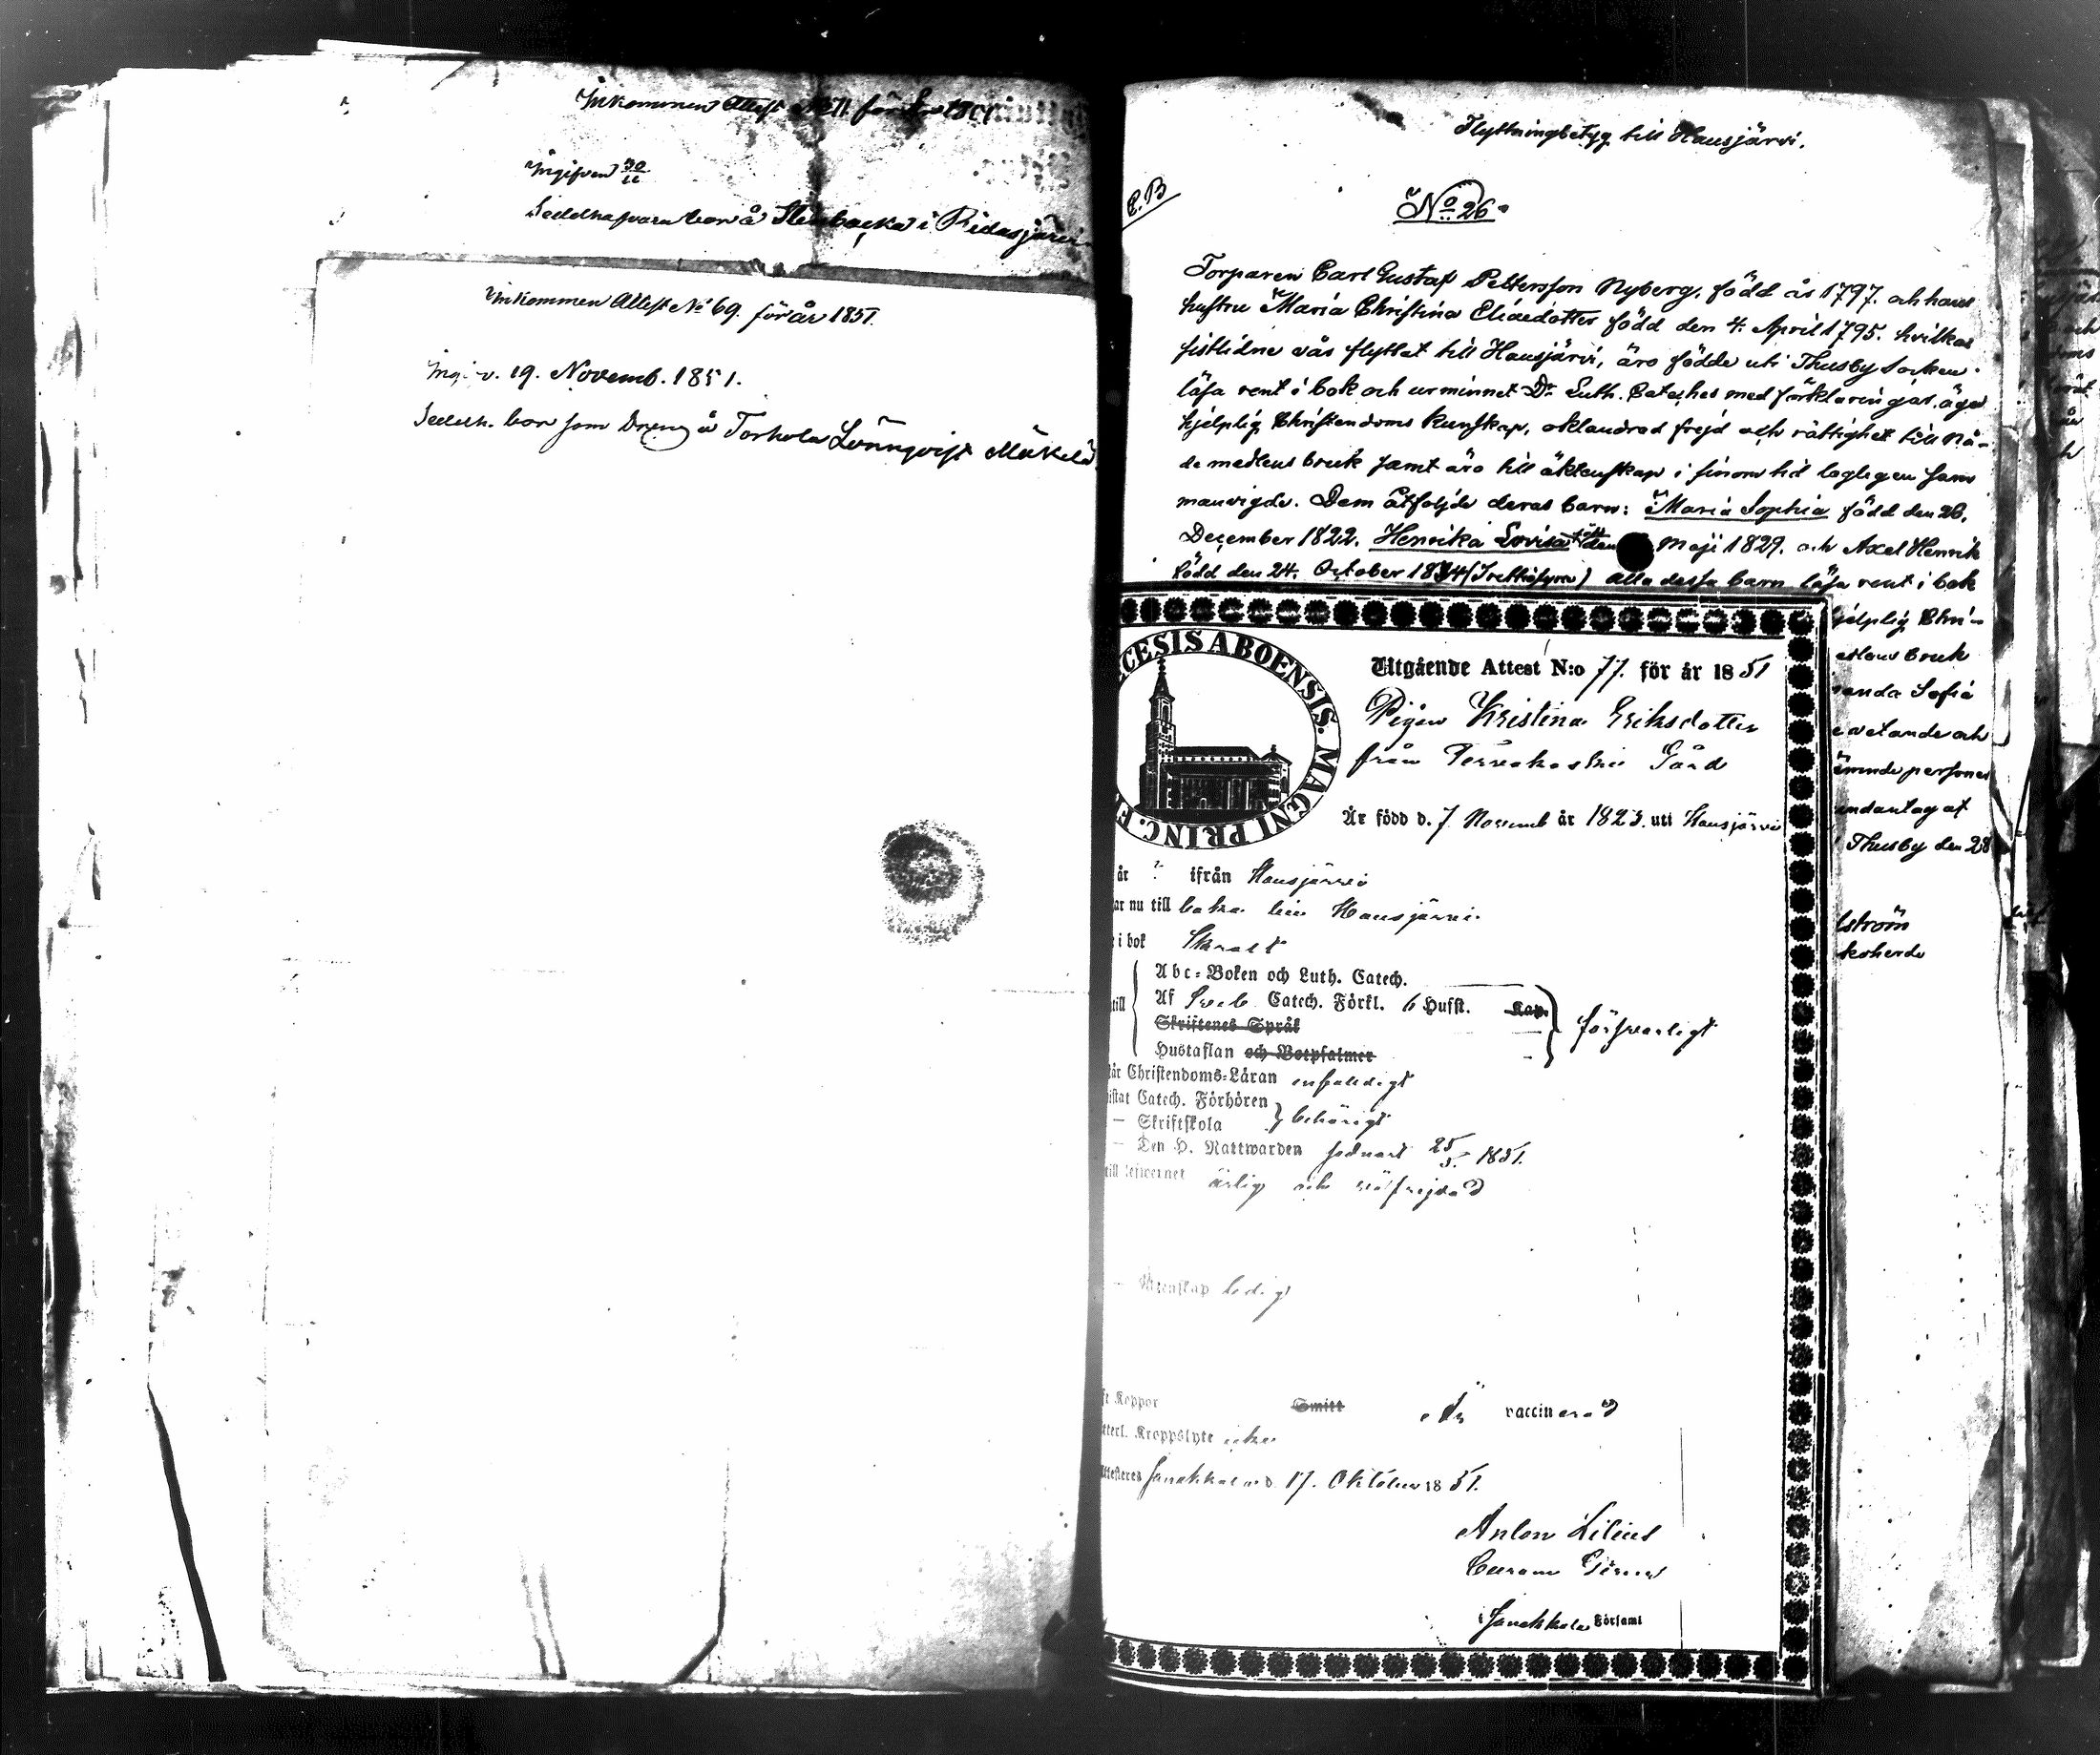 Inkommen Attest No 71. för år 1851
Ingifven 30/11
Sedelhafvaren bor å Stenbacka i Ridasjärvi
Inkommen Attest No 69. för år 1851.
Ingifv. 19. Novemb. 1851.
Sedelh. bor som Dreng å Torhola Lönnqvist Mäkelä
Flyttningbetyg till Hausjärvi.
C.B
No 26.
Torparen Carl Gustaf Pettersson Nyberg, född år 1797. och hans
hustru Maria Christina Eliaedotter född den 4. April 1795. hvilka
sistlidne vår flyttat till Hausjärvi, äro födde uti Thusby Socken
läsa rent i bok och ur minnet Dr Luth. Cateches med förklaringar, äga
hjelplig Christendoms kunskap, oklandrad frejd och rättighet till Nå-
de medlens bruk samt äro till äktenskap i sinom tid lagligen sam
manvigde. Dem åtfölja deras barn: Maria Sophia född den 26.
December 1822. Henrika Lovisa född den Maji 1829. och Axel Henrik
född den 24. October 1834 (Trettiofyra) alla dessa barn läsa rent i bok
hjelplig Chri-
medlens bruk
anda Sofia
vetande och
ämnde personer
undantag af
Thusby den 28
lström
Kyrkoherde
DIOECESIS ABOENSIS. MAGNI PRINC. F
Utgående Attest N:o 77. för år 1851
Pigan Kristina Eriksdotter
från Tervakoski Gård
Är född d. 7 Novemb år 1823. uti Hausjärvi
år ifrån Hausjärvi
ar nu till baka till Hausjärvi.
i bok Svagt
Abc-Boken och Luth. Catech.
till Af Sveb Catech. Förkl. 6 Hufst. Kap.
Skriftenes Språk
försvarligt
Hustaflan och Botpsalmer
tår Christendoms-Läran enfaldigt
istat Catech. Förhören
— Skriftskola
behörigt
— Den H. Nattwarden sednast 25/5. 1851.
till lefwernet ärlig och väl frejdad
— Äktenskap ledig
ft Koppor Smitt Är vaccinerad
tterl. Kroppslyte icke
Attesteres Janakkala d. 17. Oktober 1851.
Anton Lilius
Janakkala Församl